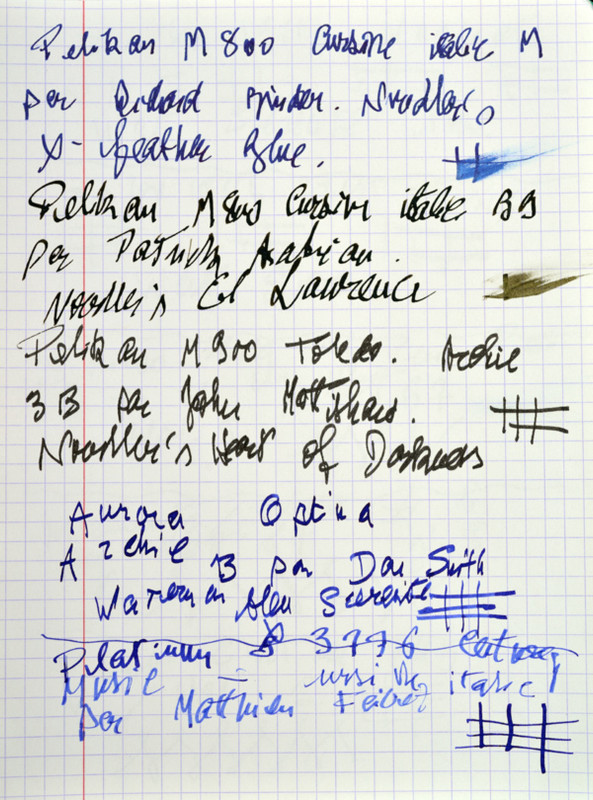 Pelikan M 800 Cursive italic M
par Richard Binder. Noodler's
X-feather Blue.
Pelikan M 800 Cursive italic BB
par Patrick
Noodler's El Lawrence
Pelikan M 900 Toledo. Archie
3B par John Motishaw.
Noodler's Heart of Darkness
Aurora Optima
Archie B par Dan Smith
Waterman bleu Serenite
Platinum 3776 Century
Music cursive italic
par Matthieu